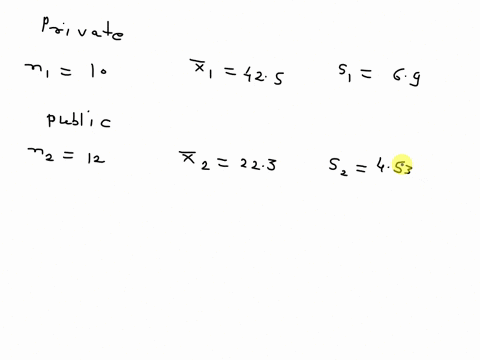 Private
n₁ = 10 x̄₁ = 42.5 s₁ = 6.9
public
n₂ = 12 x̄₂ = 22.3 S₂ = 4.53